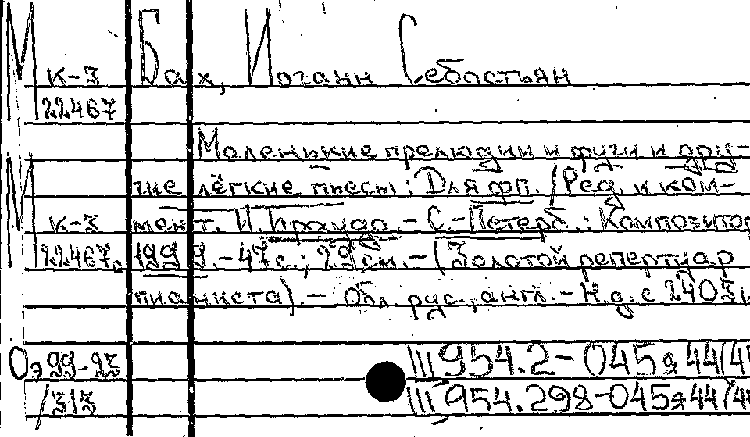 М к-3 Бах, Иоганн Себастьян
22467
Маленькие прелюдии и фуги и дру-
М гие лёгкие пьесы; Для фп. / Ред. и ком-
к-3 мент. И. Браудо. - С.-Петерб.: Композитор
22467а 1999. - 47 с.; 29 см. - (Золотой репертуар
пианиста). - Обл. рус., англ. - Н.д. с 2403
Оэ99-23 Ш954.2-045я44(4
/313 Ш954.298-045я44(4